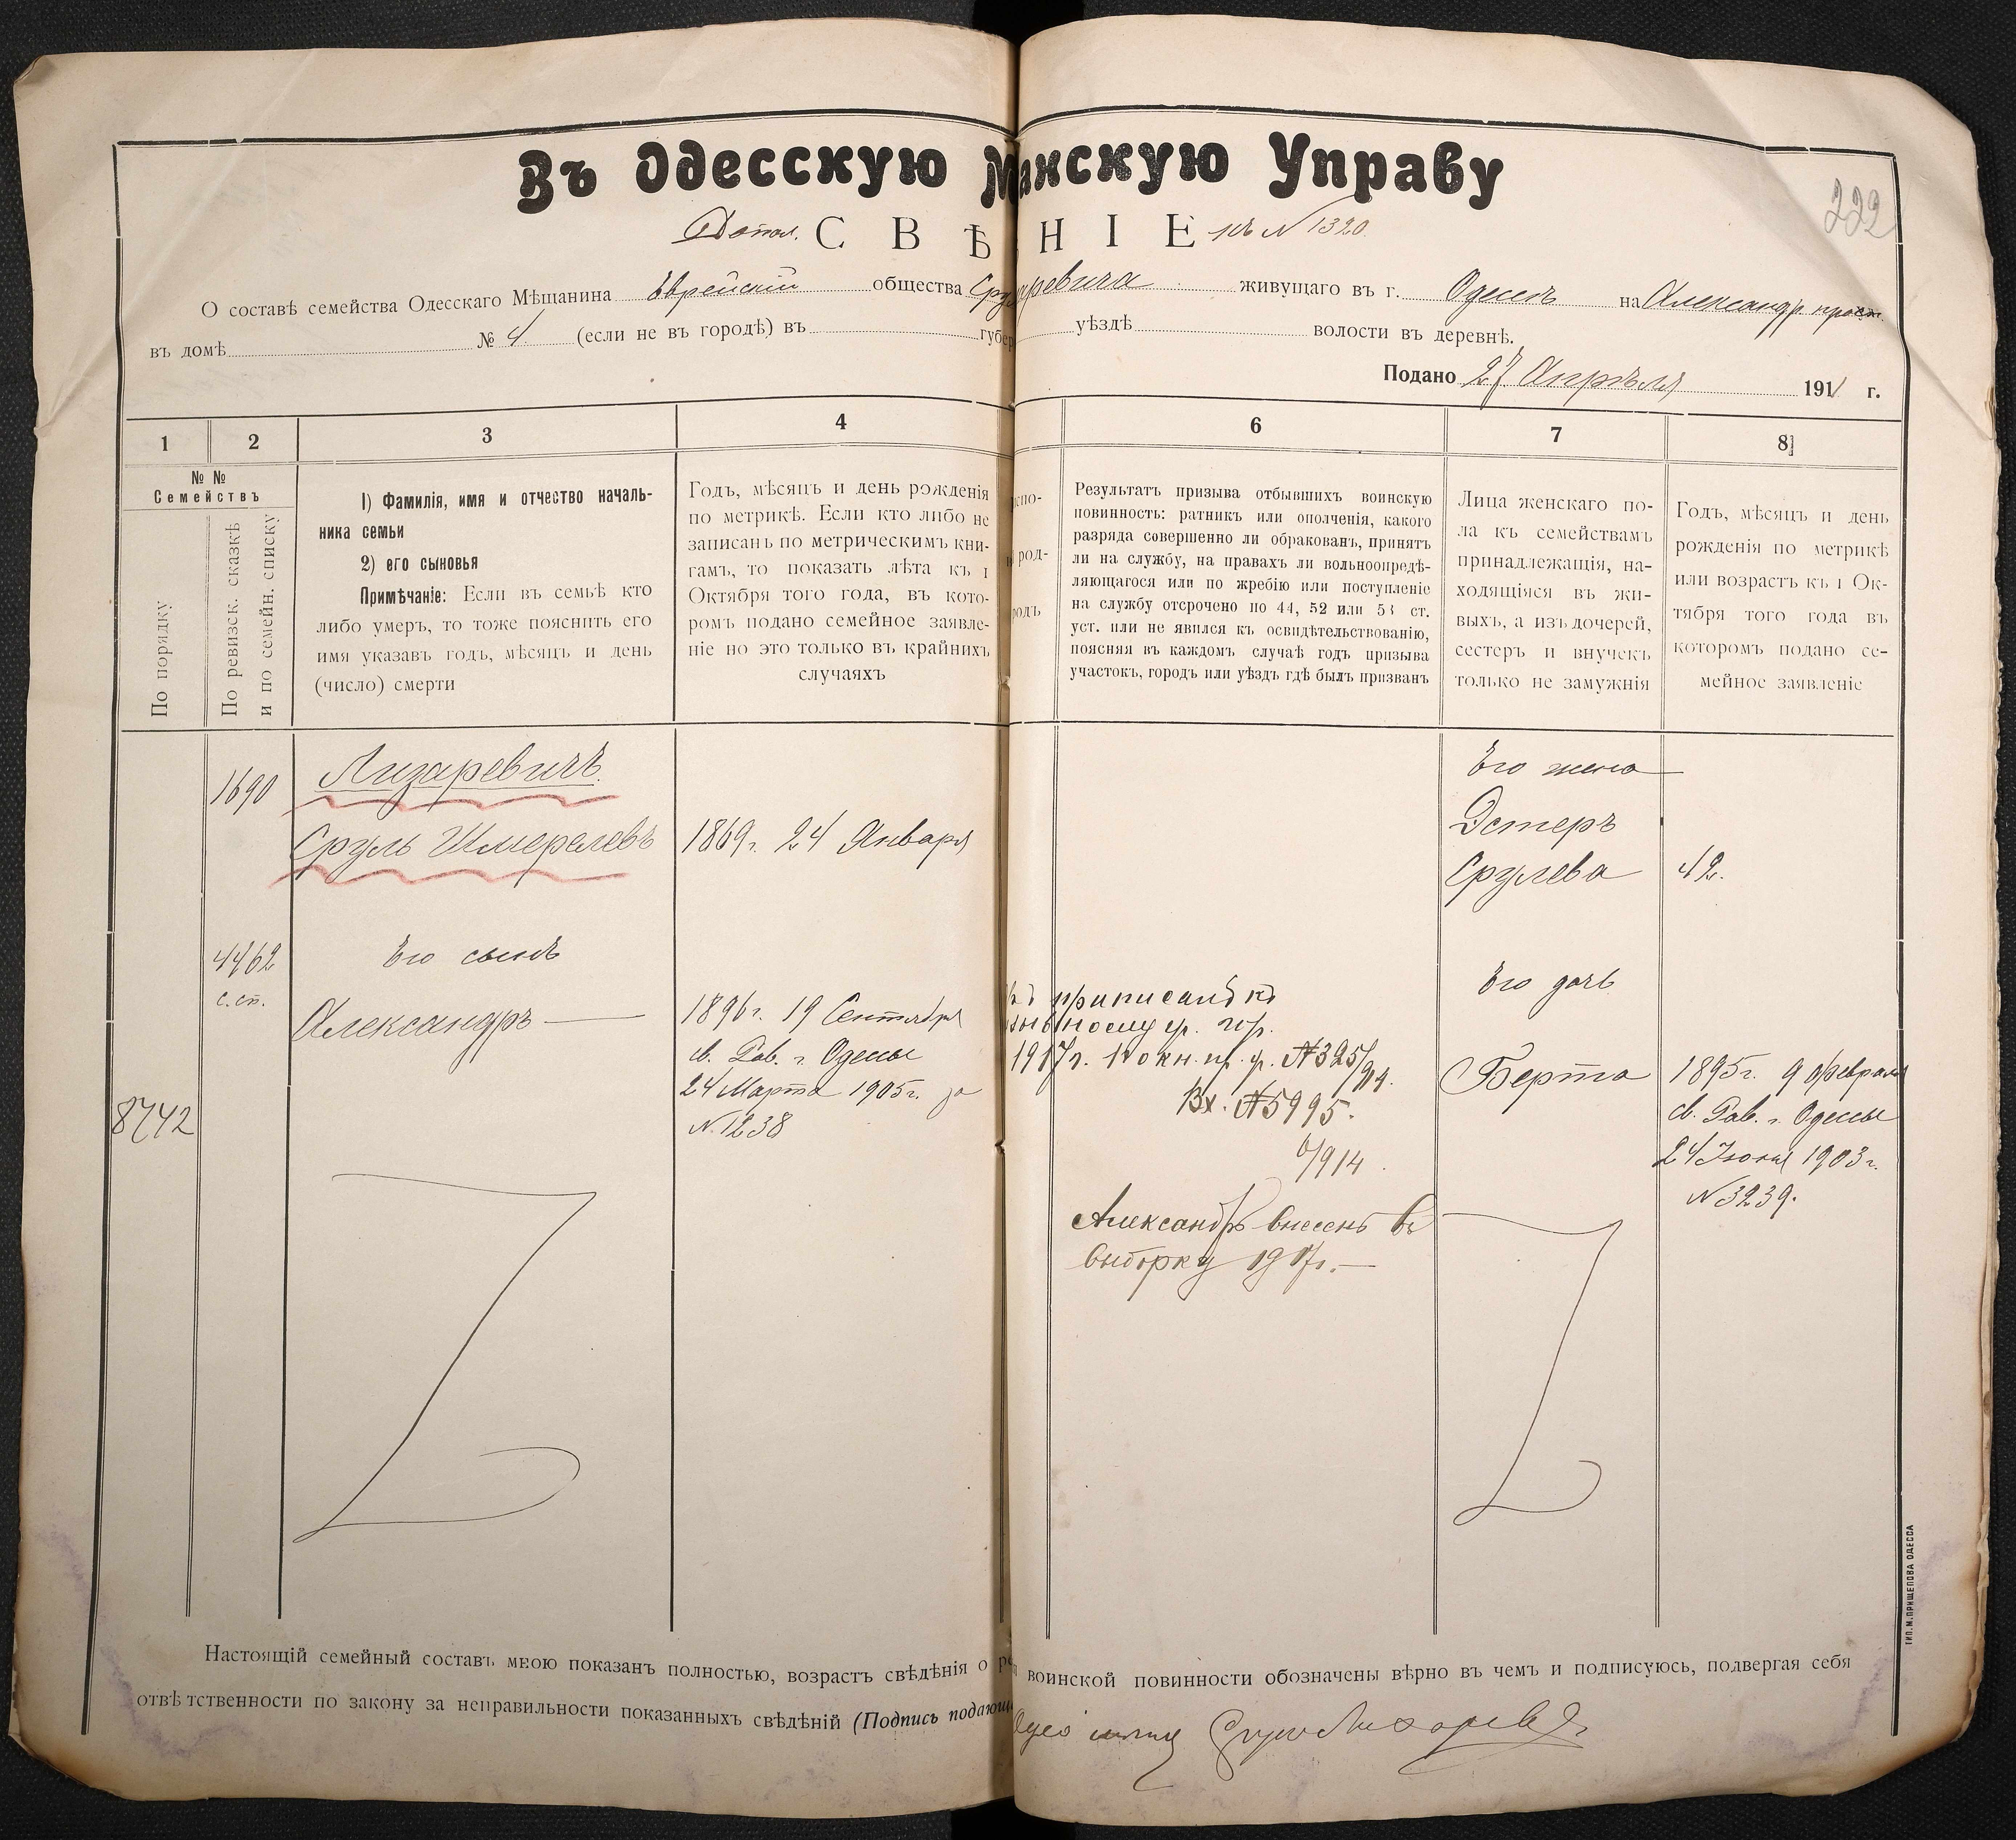 Въ Одесскую М анскую Управу
222
Допол. С В Ѣ Н І Е къ № 1320.
О составѣ семейства Одесскаго Мѣщанина Еврейскій общества Сру аревича живущаго въ г. Одессѣ на Александр. просп.
въ домѣ № 4 (если не въ городѣ) въ губер уѣздѣ волости въ деревнѣ.
Подано 27 Апрѣля 1911 г.
1 2 3 4 6 7 8
№ №
Семействъ
По порядку
По ревизск. сказкѣ
и по семейн. списку
1) Фамилія, имя и отчество началь-
ника семьи
2) его сыновья
Примѣчаніе: Если въ семьѣ кто
либо умеръ, то тоже пояснить его
имя указавъ годъ, мѣсяцъ и день
(число) смерти
Годъ, мѣсяцъ и день рожденія
по метрикѣ. Если кто либо не
записанъ по метрическимъ кни-
гамъ, то показать лѣта къ 1
Октября того года, въ кото-
ромъ подано семейное заявле-
ніе но это только въ крайнихъ
случаяхъ
спо-
род-
родъ
Результатъ призыва отбывшихъ воинскую
повинность: ратникъ или ополченія, какого
разряда совершенно ли обракованъ, принятъ
ли на службу, на правахъ ли вольноопредѣ-
ляющагося или по жребію или поступленіе
на службу отсрочено по 44, 52 или 53 ст.
уст. или не явился къ освидѣтельствованію,
поясняя въ каждомъ случаѣ годъ призыва
участокъ, городъ или уѣздъ гдѣ былъ призванъ
Лица женскаго по-
ла къ семействамъ
принадлежащія, на-
ходящіяся въ жи-
выхъ, а изъ дочерей,
сестеръ и внучекъ
только не замужнія
Годъ, мѣсяцъ и день
рожденія по метрикѣ
или возрастъ къ 1 Ок-
тября того года въ
которомъ подано се-
мейное заявленіе
1690
Лизаревичъ
Сруль Шмерелевъ
1869 г. 24 Января
Его жена
Эстеръ
Срулева
42.
4462
с. сп.
Его сынъ
Александръ
8742
1896 г. 19 Сентября
св. Рав. г. Одессы
24 Марта 1905 г. за
№ 1238
приписанъ къ
ному уч. гор.
1917 г. 10 кн. пр. у. № 325/914.
Вх. № 5995.
6/914.
Александръ внесенъ въ
выборку 1917 г.
Его дочь
Берта
1895 г. 9 Февраля
св. Рав. г. Одессы
24 Іюня 1903 г.
№ 3239.
Настоящій семейный составъ мною показанъ полностью, возрастъ свѣдѣнія о воинской повинности обозначены вѣрно въ чемъ и подписуюсь, подвергая себя
отвѣтственности по закону за неправильности показанныхъ свѣдѣній (Подпись подающ
ТИП. М. ПРИЩЕПОВА ОДЕССА